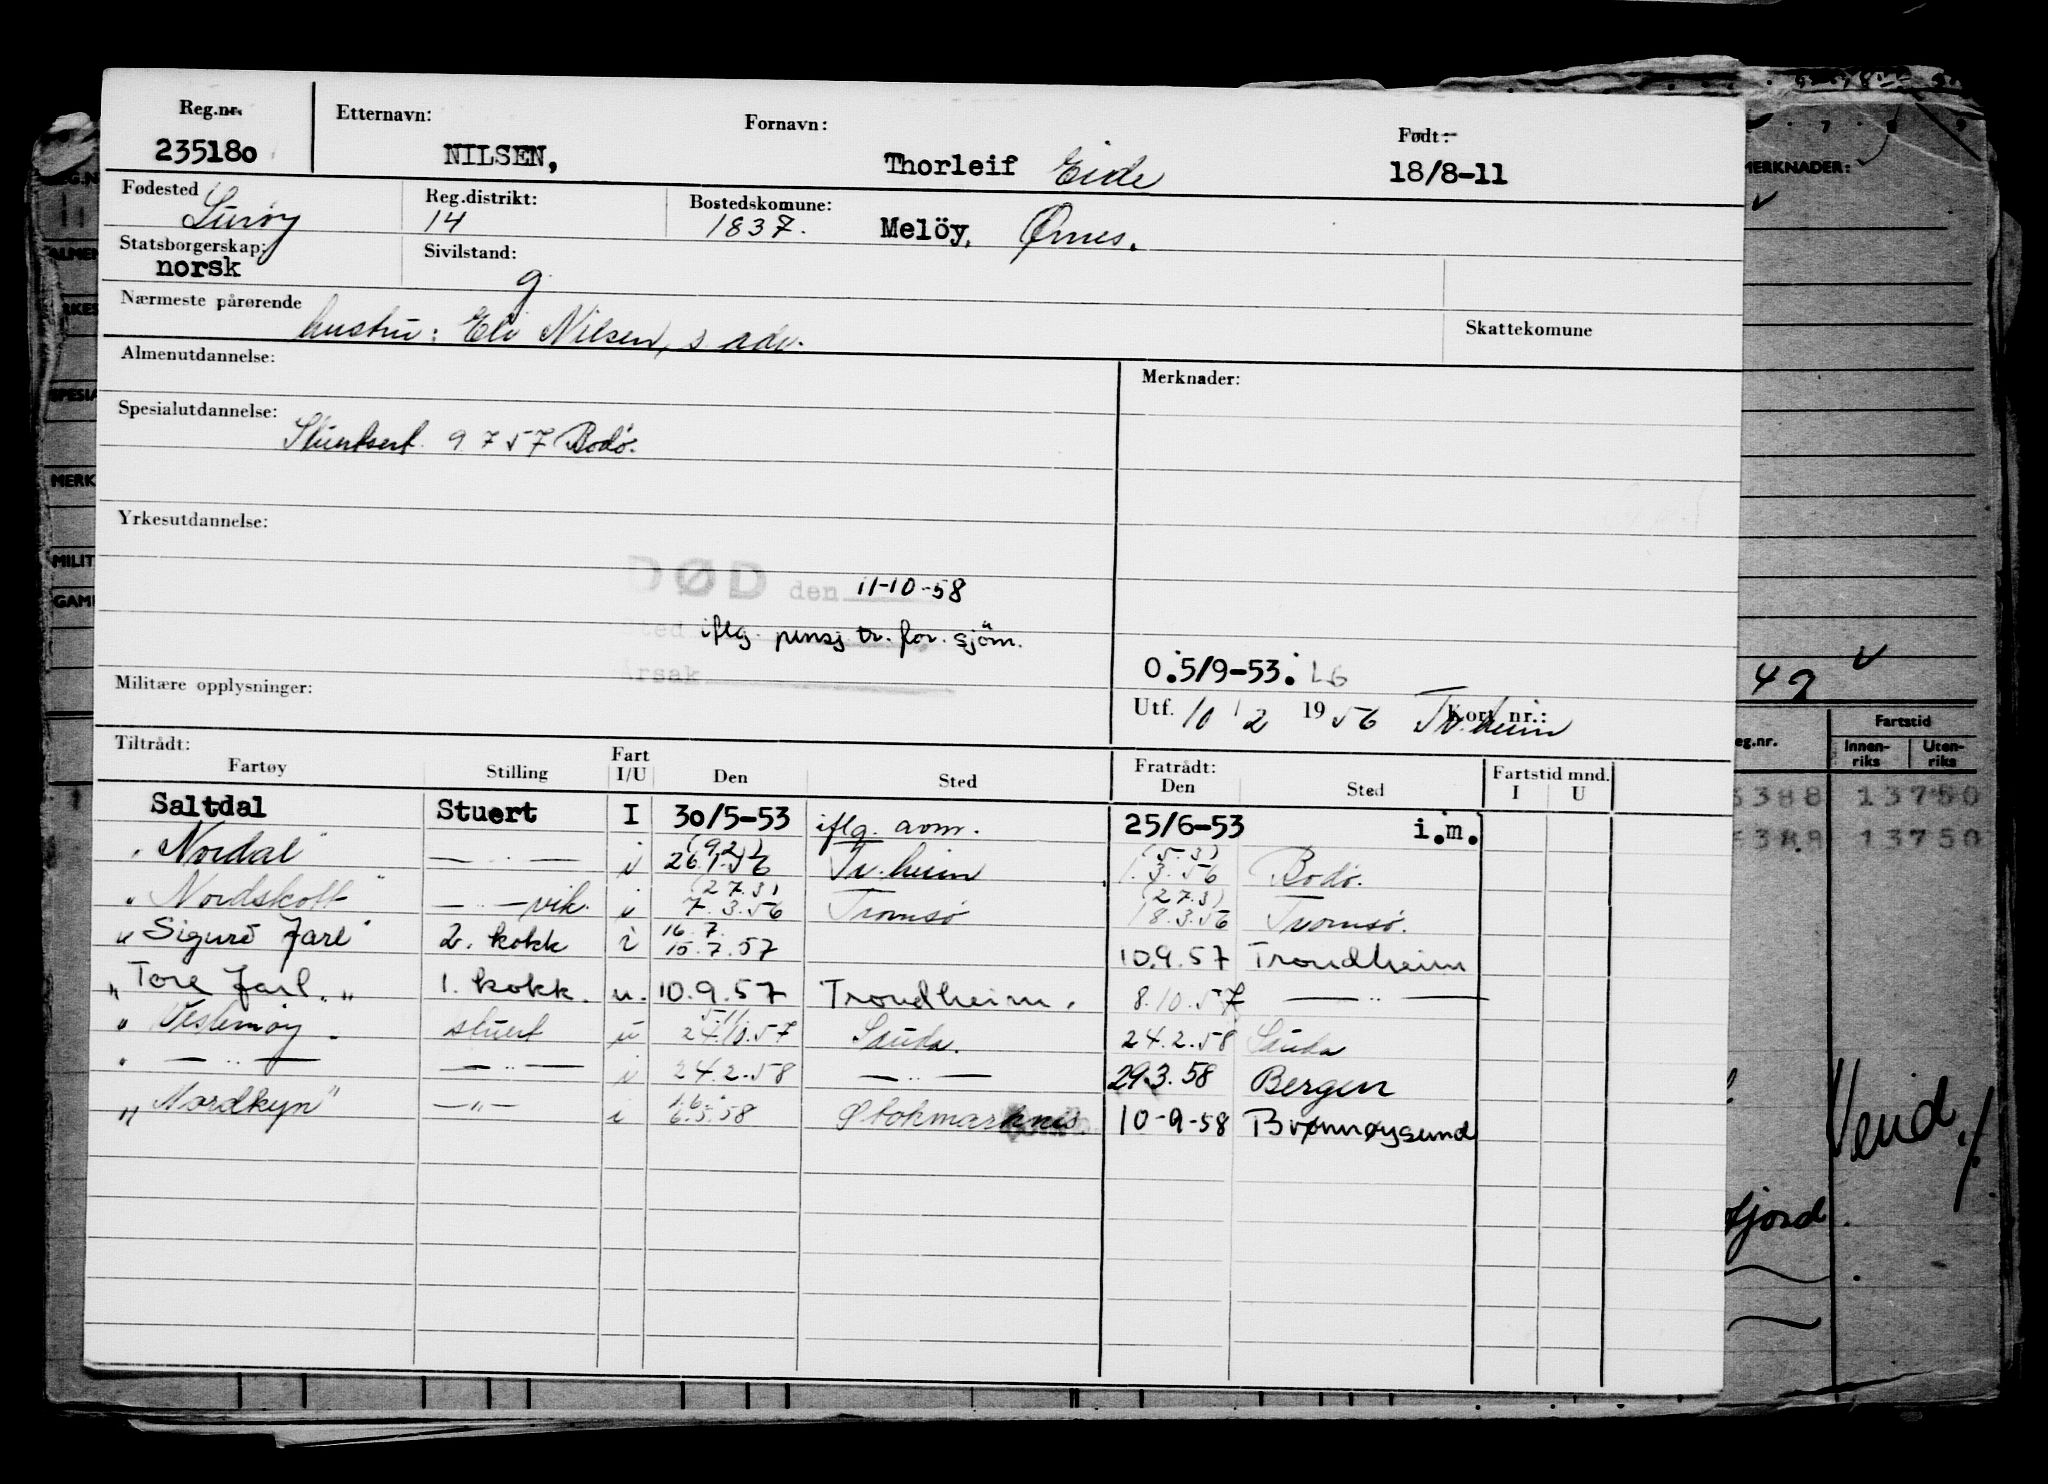 Reg.nr. Etternavn: Fornavn: Født:
235180 NILSEN, Thorleif Eide 18/8-11
Fødested Reg.distrikt: Bostedskomune:
Lurøy 14 1837. Melöy, Ørnes.
Statsborgerskap: Sivilstand:
norsk g
Nærmeste pårørende Skattekomune
hustru: Eli Nilsen, s. adr.
Almenutdannelse: Merknader:
Spesialutdannelse:
Stuertsert. 9 7 57 Bodö.
Yrkesutdannelse:
DØD den 11-10-58
sted iflg. pensj tr. for. sjöm.
Årsak
0.5/9-53. L6
Militære opplysninger: Utf. 10 / 2 1956 Kort nr.: Tr.heim
Tiltrådt: Fratrådt:
Fartøy Stilling Fart I/U Den Sted Den Sted Fartstid mnd. I U
Saltdal Stuert I 30/5-53 iflg. avm. 25/6-53 i.m.
"Nordal" — " — i (9.2) 26.1.56 Tr.heim (5.3) 1.3.56 Bodö.
"Nordskott" — " — vik. i (27.3) 7.3.56 Tromsö (27.3) 18.3.56 Tromsö.
"Sigurd Jarl" 2. kokk i 16.7. 15.7.57 10.9.57 Trondheim
"Tore Jarl." 1. kokk. u. 10.9.57 Trondheim. 8.10.57 — " —
" Vestemøy. stuert u 5.11 24.10.57 Sauda. 24.2.58 Sauda
" — " — — " — i 24.2.58 — " — 29.3.58 Bergen
"Nordkyn" — " — i 1.6. 6.5.58 Stokmarknes 10-9-58 Brønnøysund
MERKNADER:
7 8 9
42
eg.nr. Fartstid
Innenriks Utenriks
388 13750
388 13750
Vend./.
fjord.